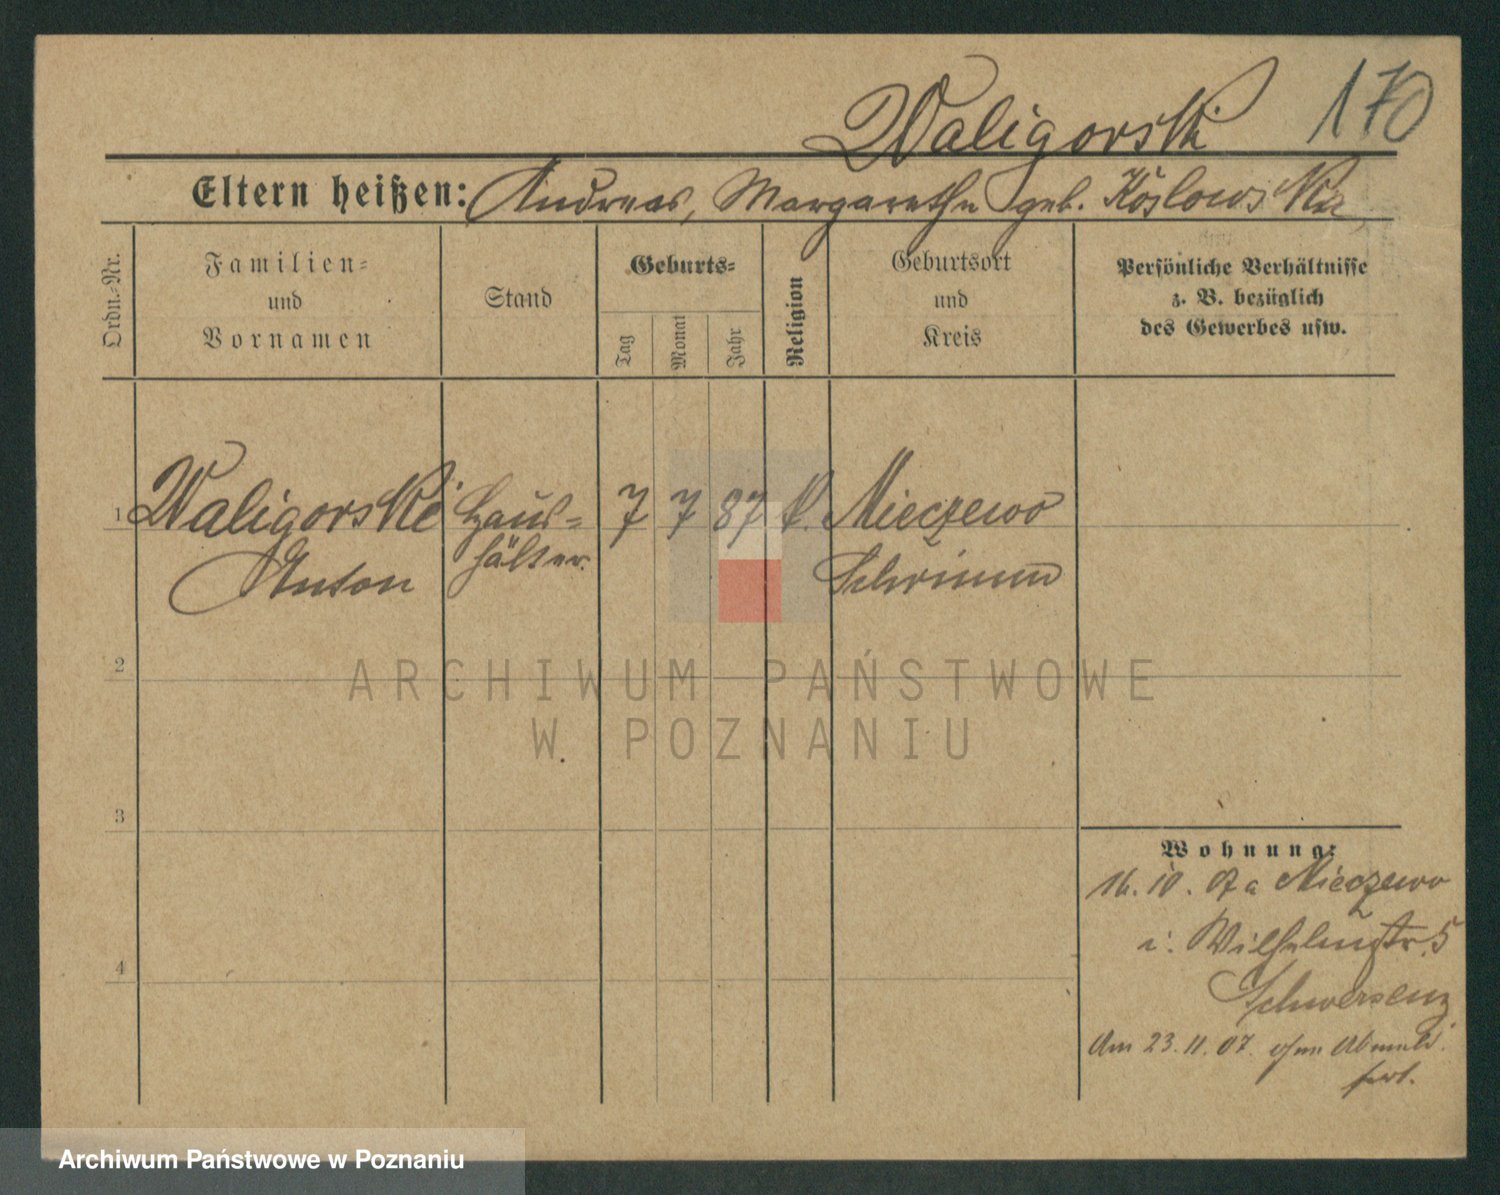 Waligorski 170
Eltern heißen: Andreas, Margarethe geb. Koslowska,
Ordn.-Nr.
Familien-
und
Vornamen
Stand
Geburts-
Tag
Monat
Jahr
Religion
Geburtsort
und
Kreis
Persönliche Verhältnisse
z. B. bezüglich
des Gewerbes usw.
1 Waligorski Haus- 7 7 87 k. Mieczewo
Anton hälter. Schrimm
2
ARCHIWUM PAŃSTWOWE
W POZNANIU
3
Wohnung:
16. 10. 07 a Mieczewo
i. Wilhelmstr. 5
4
Schwersenz
Am 23. 11. 07. ohne Abmeld.
fort.
Archiwum Państwowe w Poznaniu